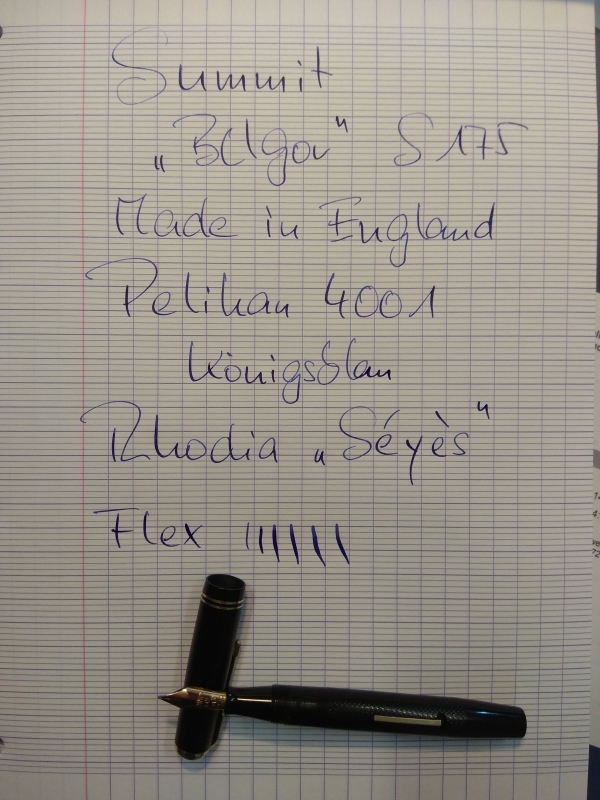 Summit
„Bulgov" S 175
Made in England
Pelikan 4001
Königsblau
Rhodia „Séyès"
Flex